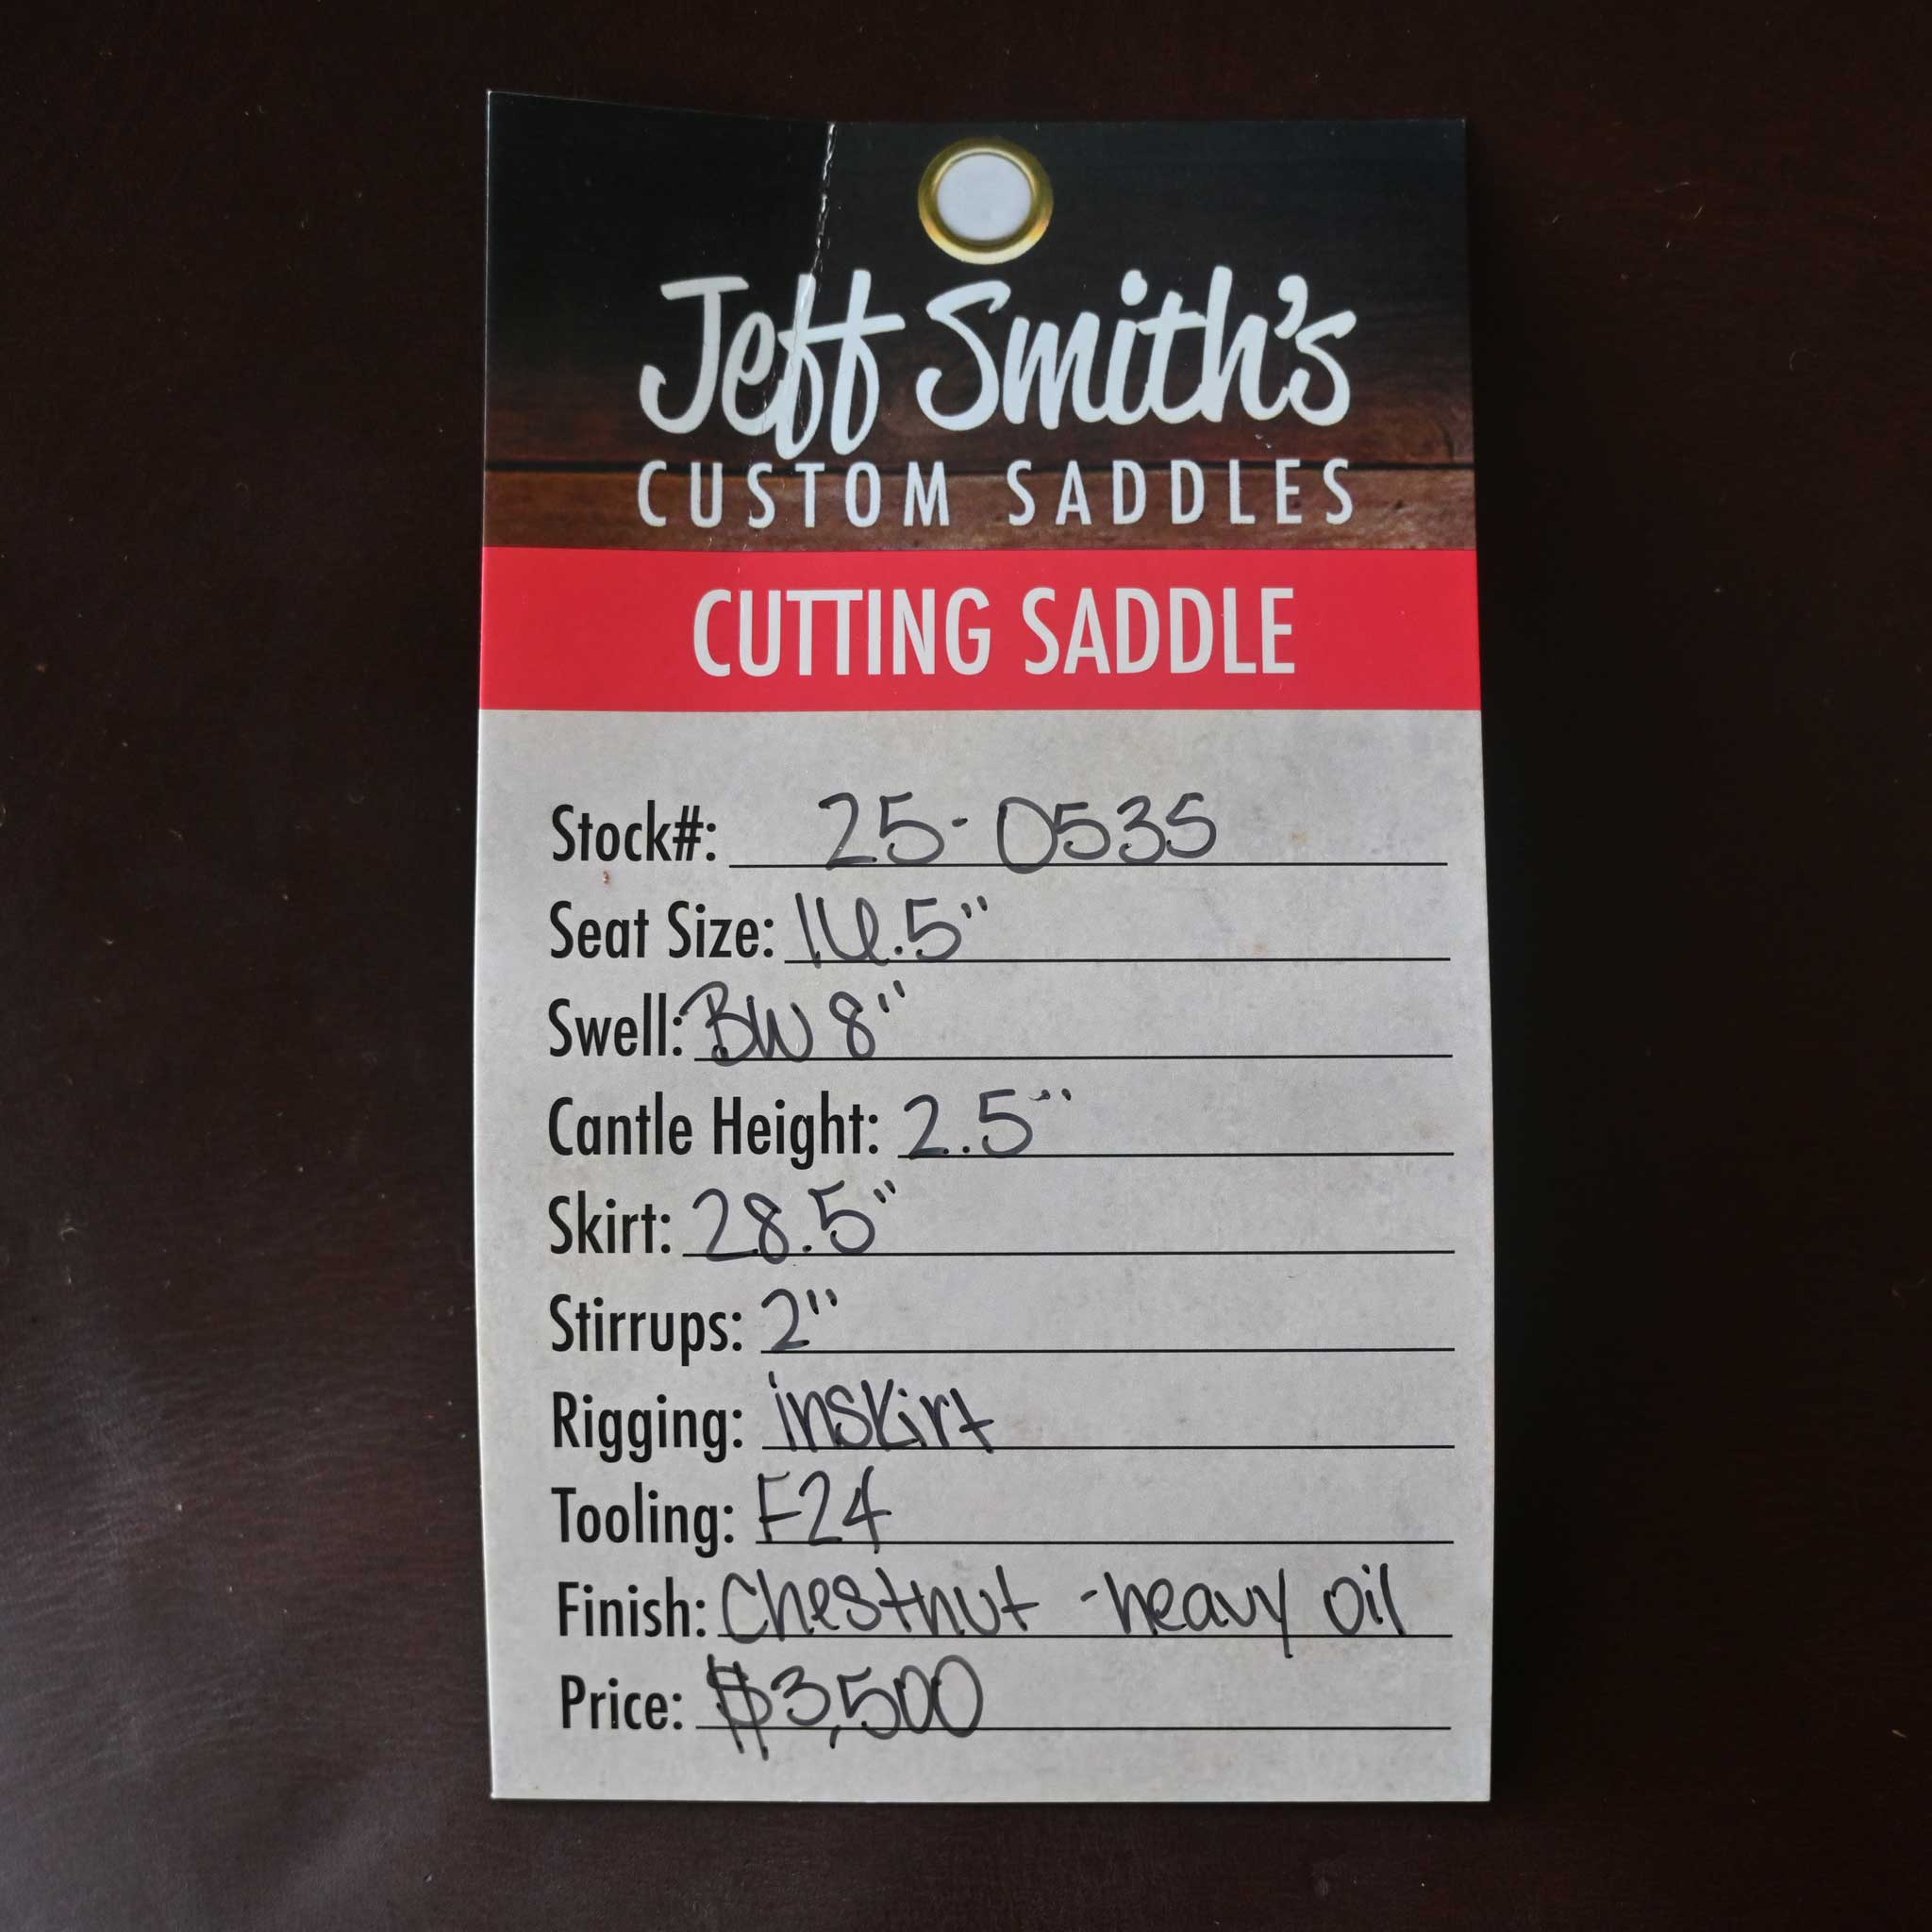 Jeff Smith's
CUSTOM SADDLES
CUTTING SADDLE
Stock#: 25-0535
Seat Size: 16.5"
Swell: BW 8"
Cantle Height: 2.5"
Skirt: 28.5"
Stirrups: 2"
Rigging: inskirt
Tooling: F24
Finish: Chestnut -heavy oil
Price: $3,500